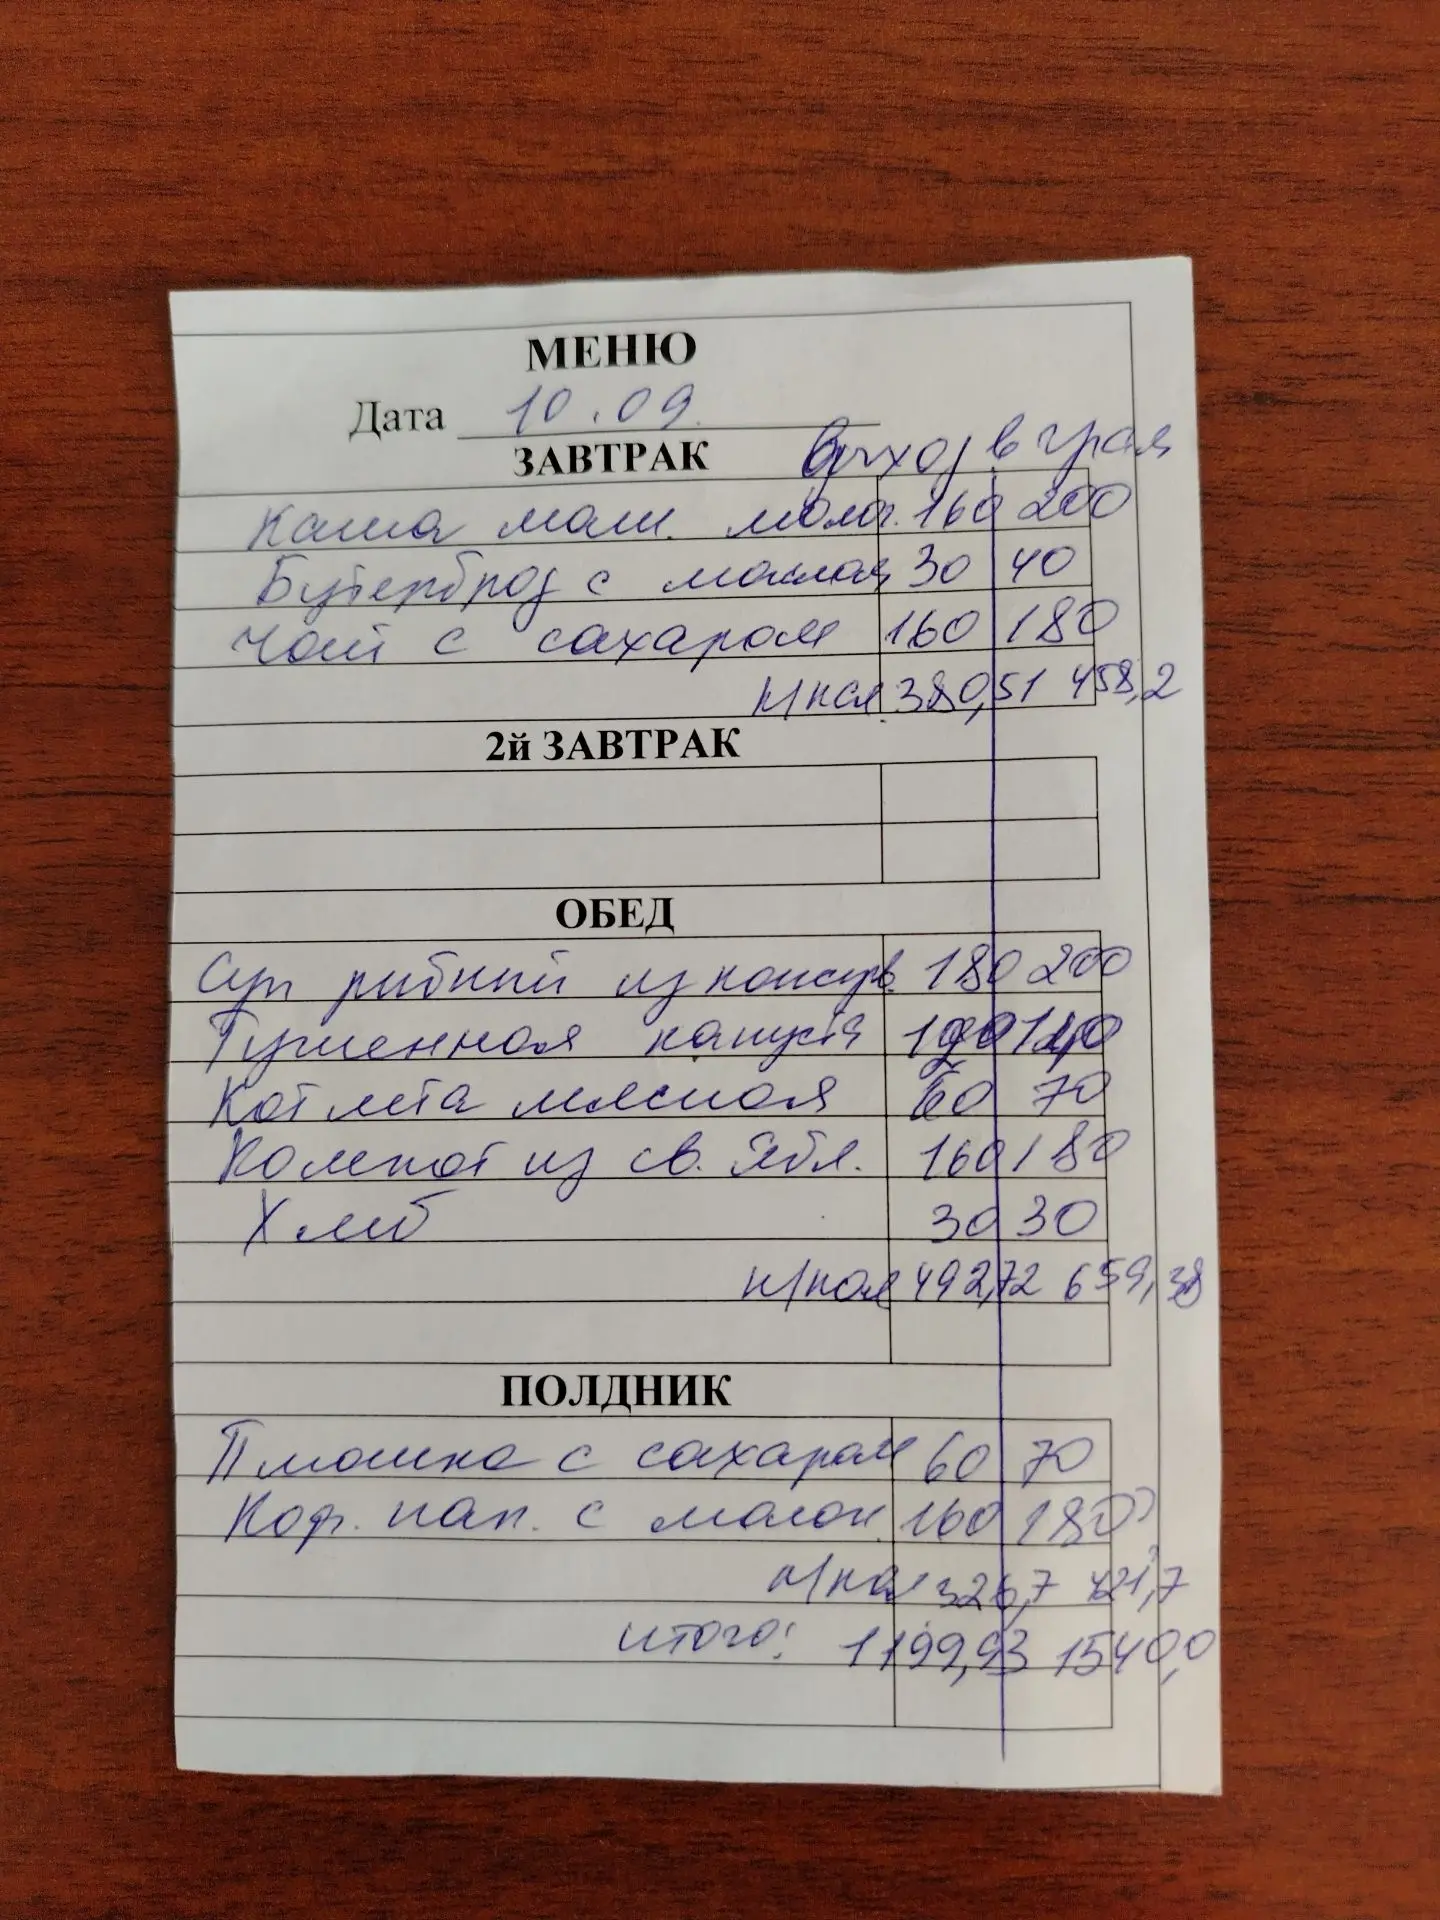 МЕНЮ
Дата 10.09.
ЗАВТРАК выход в грам
Каша ман. молоч. 160 200
Бутерброд с маслом 30 40
Чай с сахаром 160 180
к/кал 380,51 458,2
2й ЗАВТРАК
ОБЕД
Суп рибний из консерв. 180 200
Тушенная капуста
Котлета мясная 60 70
Компот из св. ябл. 160 180
Хлеб 30 30
к/кал 492,72 659,38
ПОЛДНИК
Плюшка с сахаром 60 70
Коф. нап. с молок 160 180
к/кал 326,7 421,7
итого: 1199,93 1540,0